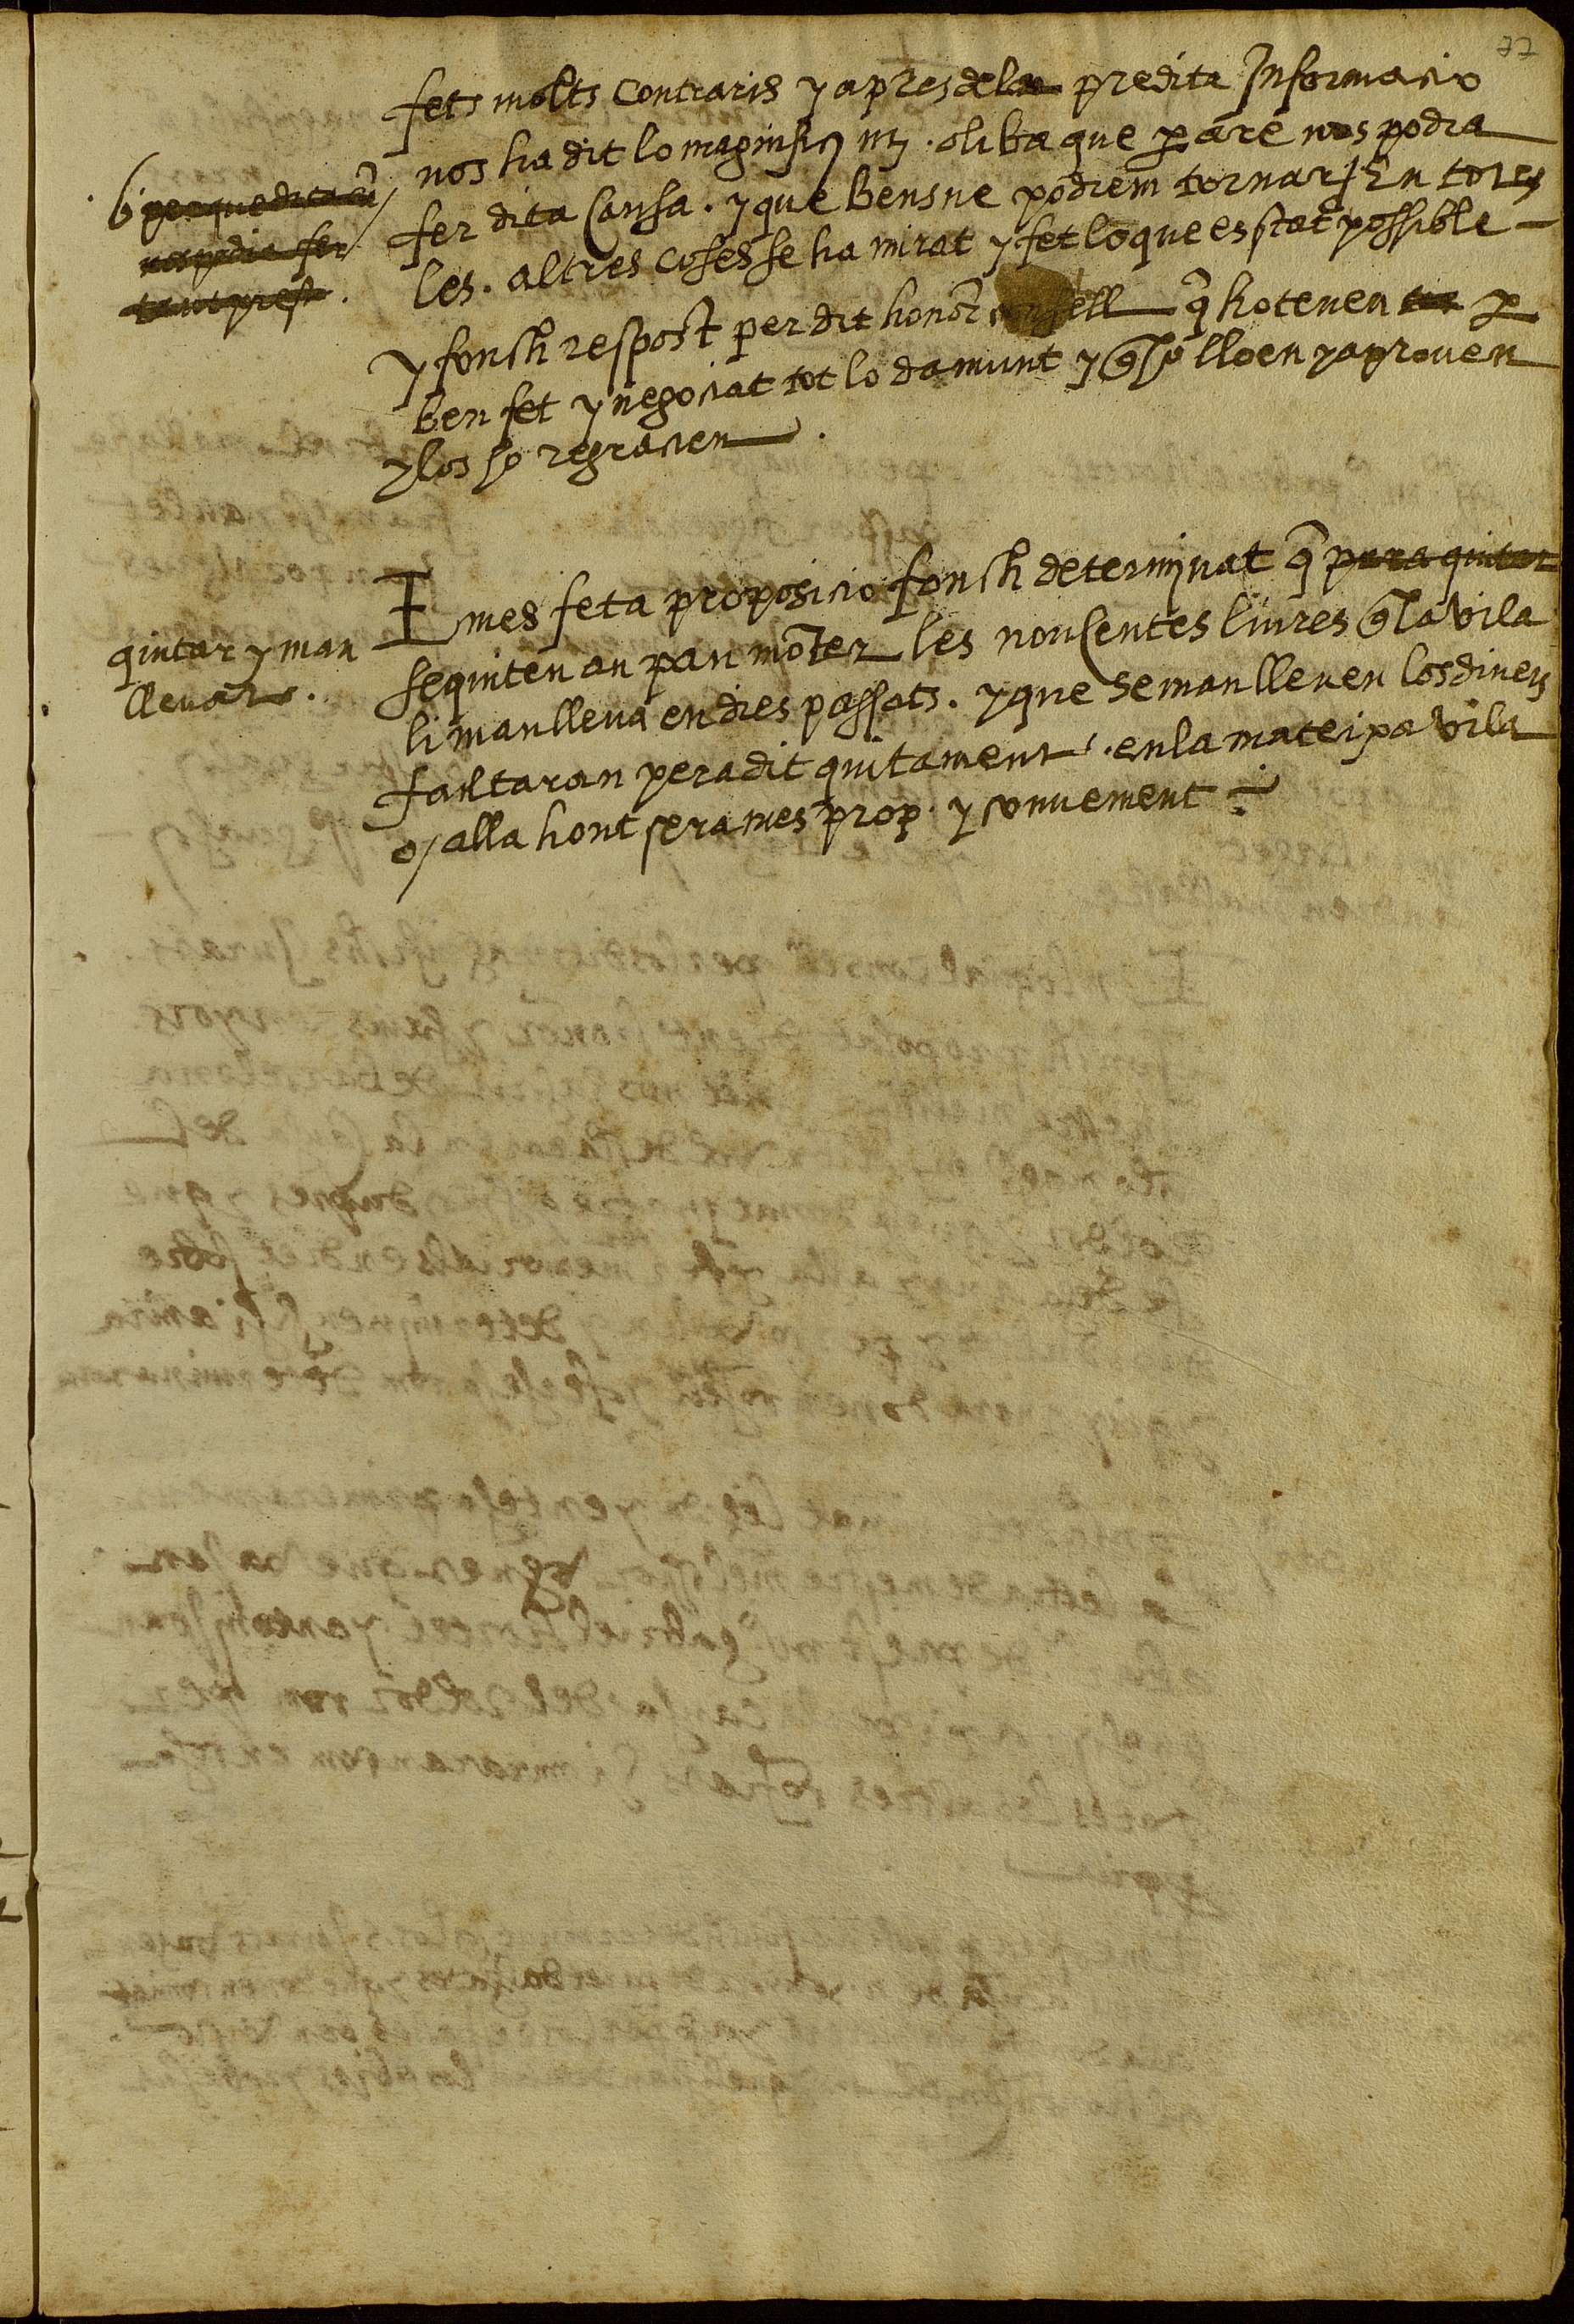 77
fets molts contraris y apres de la predita Informacio
nos ha dit lo magnifich mº. oliba que per are nos podia
fer dita causa. y que bens ne podiem tornar / En totes
les. altres coses se ha mirat y fet lo que es stat possible
y fonch respost per dit honor. consell q̃ ho tenen per
ben fet y negociat tot lo damunt y q̃ ho lloen y aproven
y los ho regracien.
perque dita cã
nos podia fer
tant prest.
E mes feta proposicio fonch determjnat q̃ para quitar
se quiten an pau moter les nou sentes liures q̃ la vila
li manlleva en dies passats. y que se manlleven los diners
faltaran per a dit quitament. en la mateixa vila
o / alla hont sera mes prop. y convenient
quitar y man
llevar.